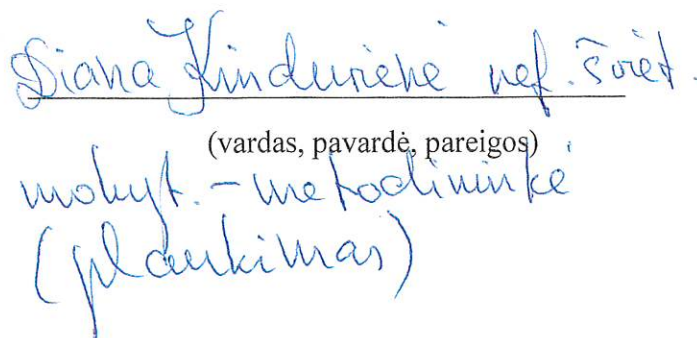 Diana Kindurienė nef. šviet.
(vardas, pavardė, pareigos)
mokyt. – metodininkė
(plaukimas)